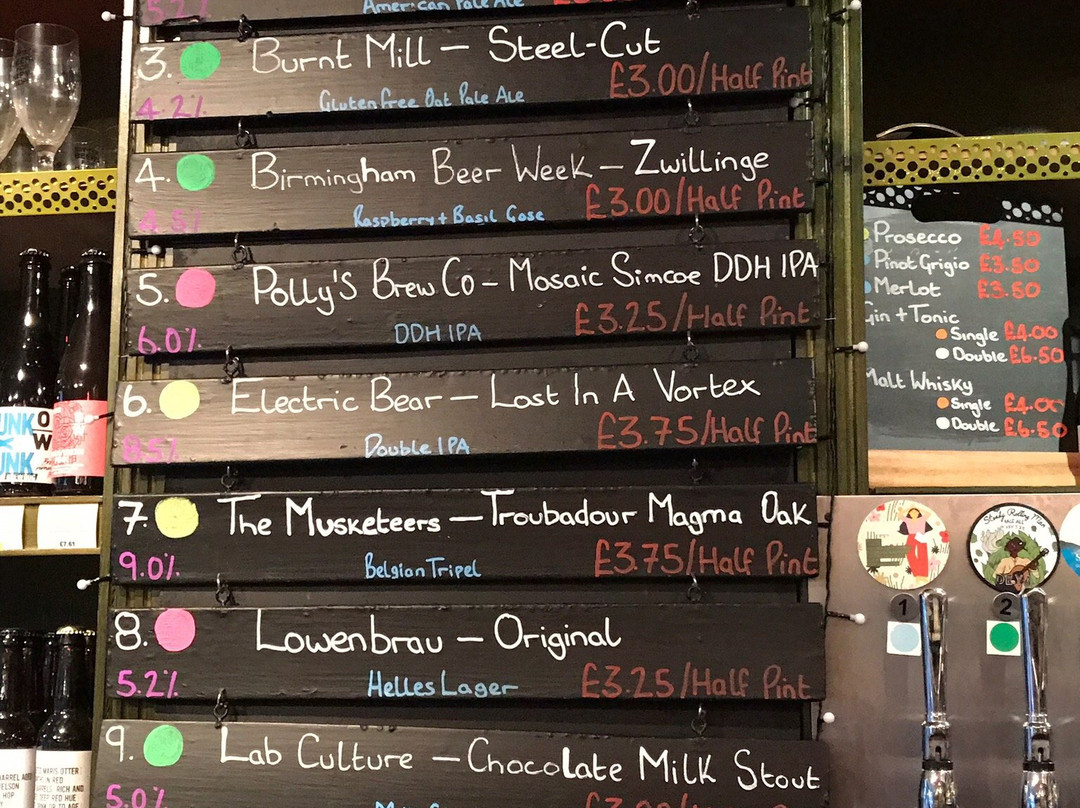 5.2%
American Pale Ale
3. Burnt Mill — Steel-Cut
£3.00/Half Pint
4.2%
Gluten free Oat Pale Ale
4. Birmingham Beer Week — Zwillinge
£3.00/Half Pint
4.5%
Raspberry + Basil Gose
5. Polly's Brew Co — Mosaic Simcoe DDH IPA
£3.25/Half Pint
6.0%
DDH IPA
6. Electric Bear — Lost In A Vortex
£3.75/Half Pint
8.5%
Double IPA
7. The Musketeers — Troubadour Magma Oak
£3.75/Half Pint
9.0%
Belgian Tripel
8. Lowenbrau — Original
£3.25/Half Pint
5.2%
Helles Lager
9. Lab Culture — Chocolate Milk Stout
5.0%
Prosecco £4.50
Pinot Grigio £3.50
Merlot £3.50
Gin + Tonic
Single £4.00
Double £6.50
Malt Whisky
Single £4.00
Double £6.50
1
2
UNK
UNK
OW
£7.61